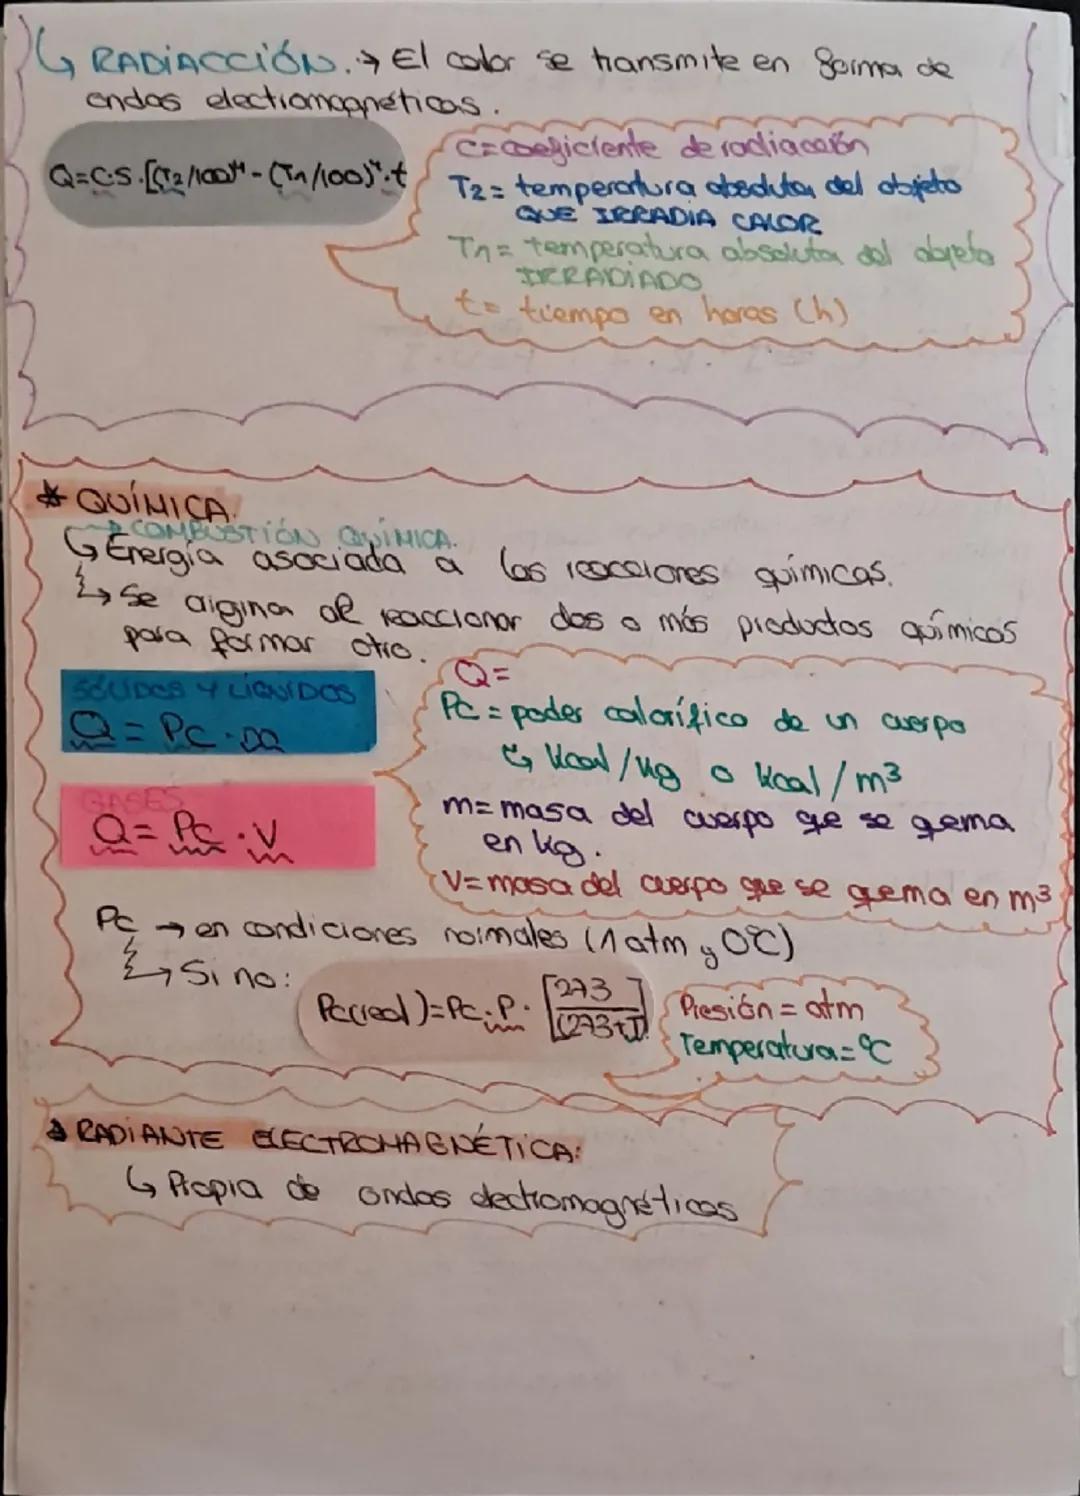 ↳ RADIACCIÓN. → El calor se transmite en forma de
ondas electromagnéticas.
Q=C·S·[(T2/100)⁴-(T1/100)⁴·t
C=coeficiente de radiaccón
T2= temperatura absoluta del objeto
QUE IRRADIA CALOR
T1= temperatura absoluta del objeto
IRRADIADO
t= tiempo en horas (h)
* QUÍMICA.
→ COMBUSTIÓN QUÍMICA.
↳ Energía asociada a las reacciones químicas.
↳ Se origina al reaccionar dos o más productos químicos
para formar otro.
SÓLIDOS Y LÍQUIDOS
Q = Pc · m
GASES
Q = Pc · V
Q=
Pc = poder calorífico de un cuerpo
↳ Kcal/kg o kcal/m³
m= masa del cuerpo que se qema
en kg.
V= masa del cuerpo que se quema en m³
Pc → en condiciones normales (1 atm y 0°C)
↳ Si no:
Pc(real)=Pc·P·[273/(273+T)]
Presión = atm
Temperatura= °C
RADIANTE ELECTROMAGNÉTICA:
↳ Propia de ondas electromagnéticas